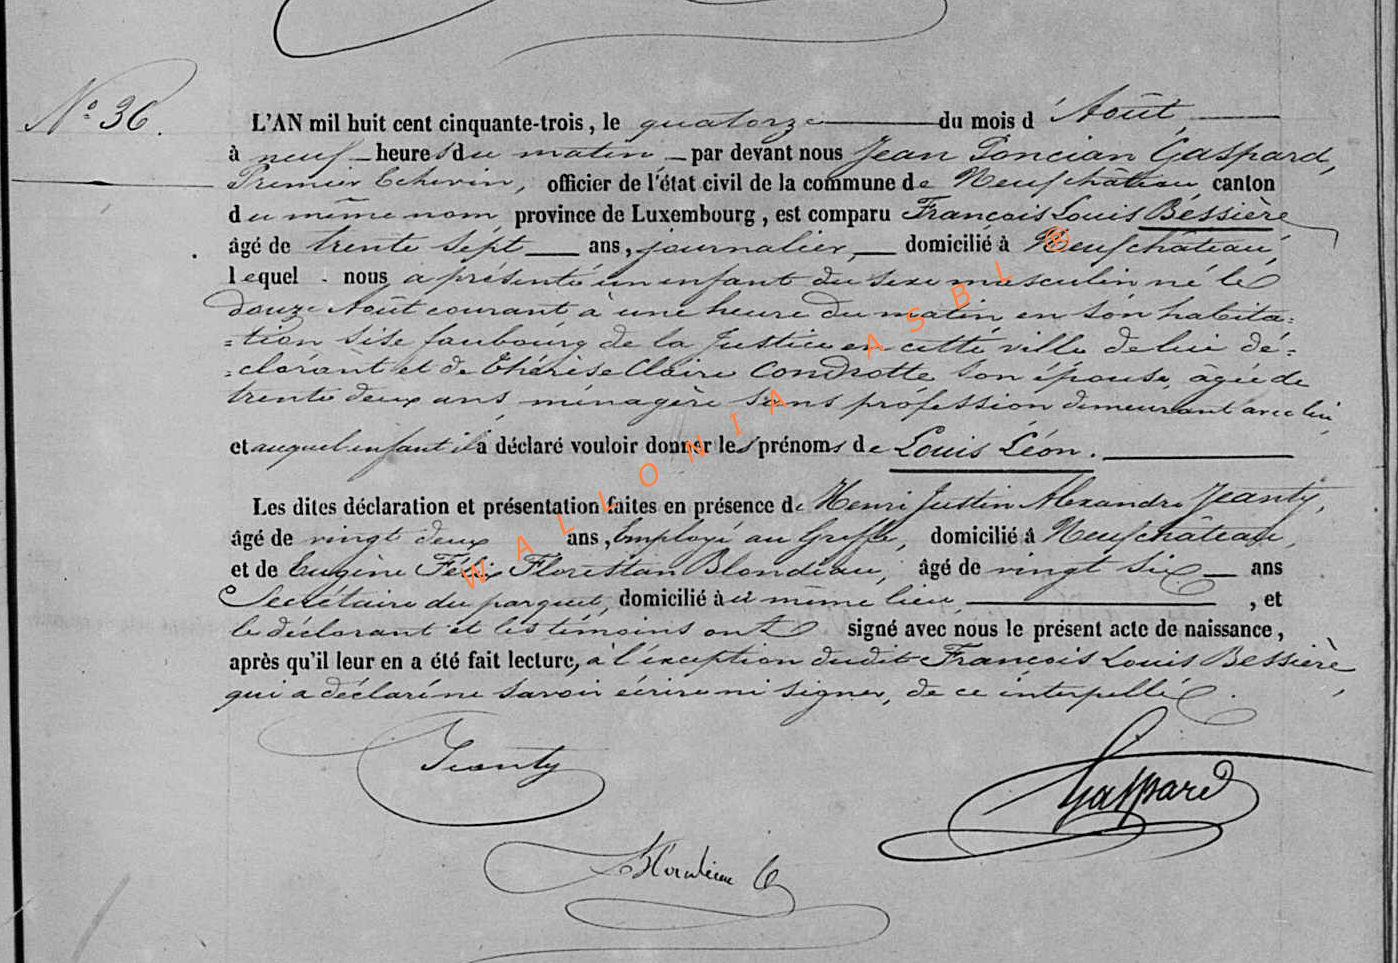 N° 36.
L'AN mil huit cent cinquante-trois, le quatorze du mois d'Août,
à neuf heures du matin, par devant nous Jean Poncian Gaspard,
Premier Echevin, officier de l'état civil de la commune de Neufchâteau, canton
du même nom, province de Luxembourg, est comparu François Louis Bessière
âgé de trente sept ans, journalier, domicilié à Neufchâteau,
lequel nous a présenté un enfant du sexe masculin né le
douze Août courant à une heure du matin, en son habita=
=tion sise faubourg de la Justice en cette ville de lui dé=
=clarant et de Thérèse Claire Condrotte son épouse, âgée de
trente deux ans ménagère sans profession demeurant avec lui,
et auquel enfant il a déclaré vouloir donner les prénoms de Louis Léon.
Les dites déclaration et présentation faites en présence de Henri Justin Alexandre Jeanty,
âgé de vingt deux ans, Employé au Greffe, domicilié à Neufchâteau,
et de Eugène Félix Florestan Blondiau, âgé de vingt six ans
Secrétaire du parquet, domicilié à même lieu, et
le déclarant et les témoins ont signé avec nous le présent acte de naissance,
après qu'il leur en a été fait lecture, à l'exception dudit François Louis Bessière,
qui a déclaré ne savoir écrire ni signer, de ce interpellé.
Jeanty
Gaspard
Blondiau
WALLONIA ASBL ®